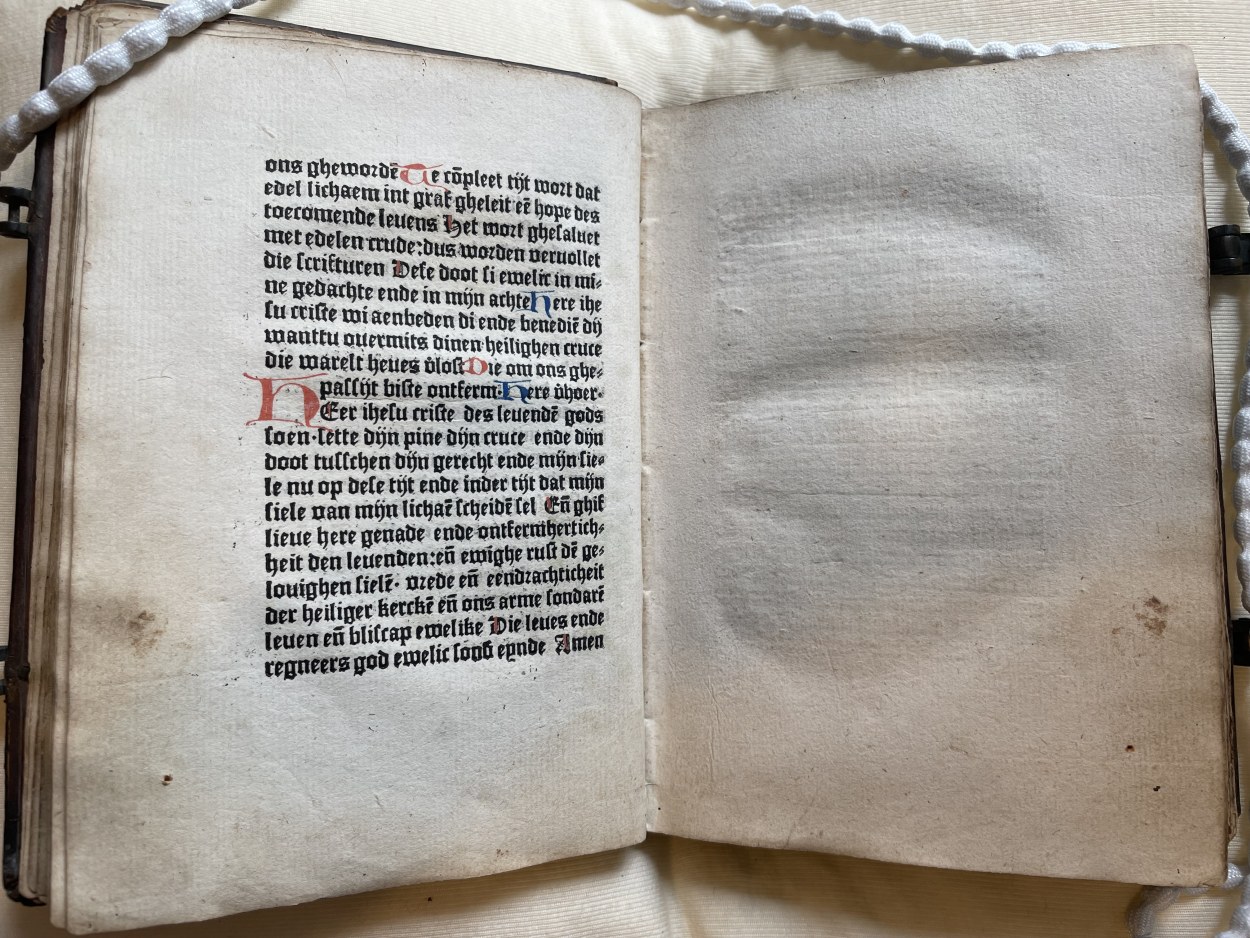 ons ghewordē Te cōpleet tijt wort dat
edel lichaem int graf gheleit eē hope des
toecomende leuens Het wort ghesaluet
met edelen crude: dus worden veruollet
die scrifturen Dese doot si ewelic in mi⸗
ne gedachte ende in mijn achte Here ihe
su criste wi aenbeden di ende benediē dij
wanttu ouermits dinen heilighen cruce
die warelt heues v̄lost Die om ons ghe⸗
passijt biste ontferm· Here v̄hoer·
HEer ihesu criste des leuendē gods
soen·sette dijn pine dijn cruce ende dijn
doot tusschen dijn gerecht ende mijn sie⸗
le nu op dese tijt ende inder tijt dat mijn
siele van mijn lichaē scheidē sel Eñ ghif
lieue here genade ende ontfermhertich⸗
heit den leuenden: eñ ewighe rust dē ge⸗
louighen sielē· vrede eñ eendrachticheit
der heiliger kerckē eñ ons arme sondarē
leuen eñ bliscap ewelike Die leues ende
regneers god ewelic sond eynde Amen